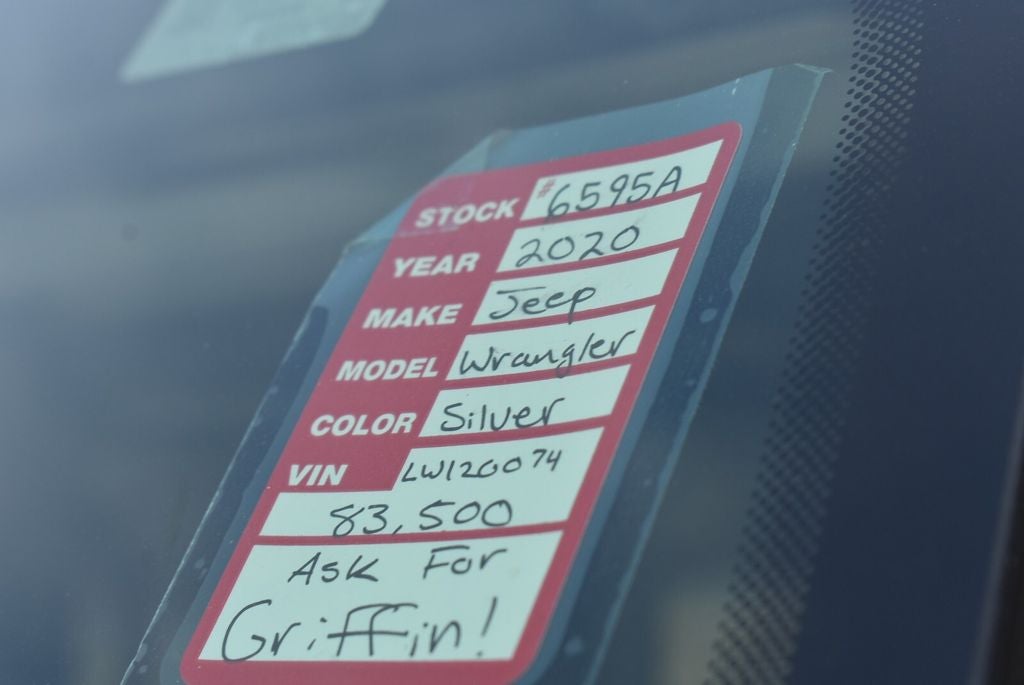 STOCK #6595A
YEAR 2020
MAKE Jeep
MODEL Wrangler
COLOR Silver
VIN LW120074
83,500
Ask For
Griffin!